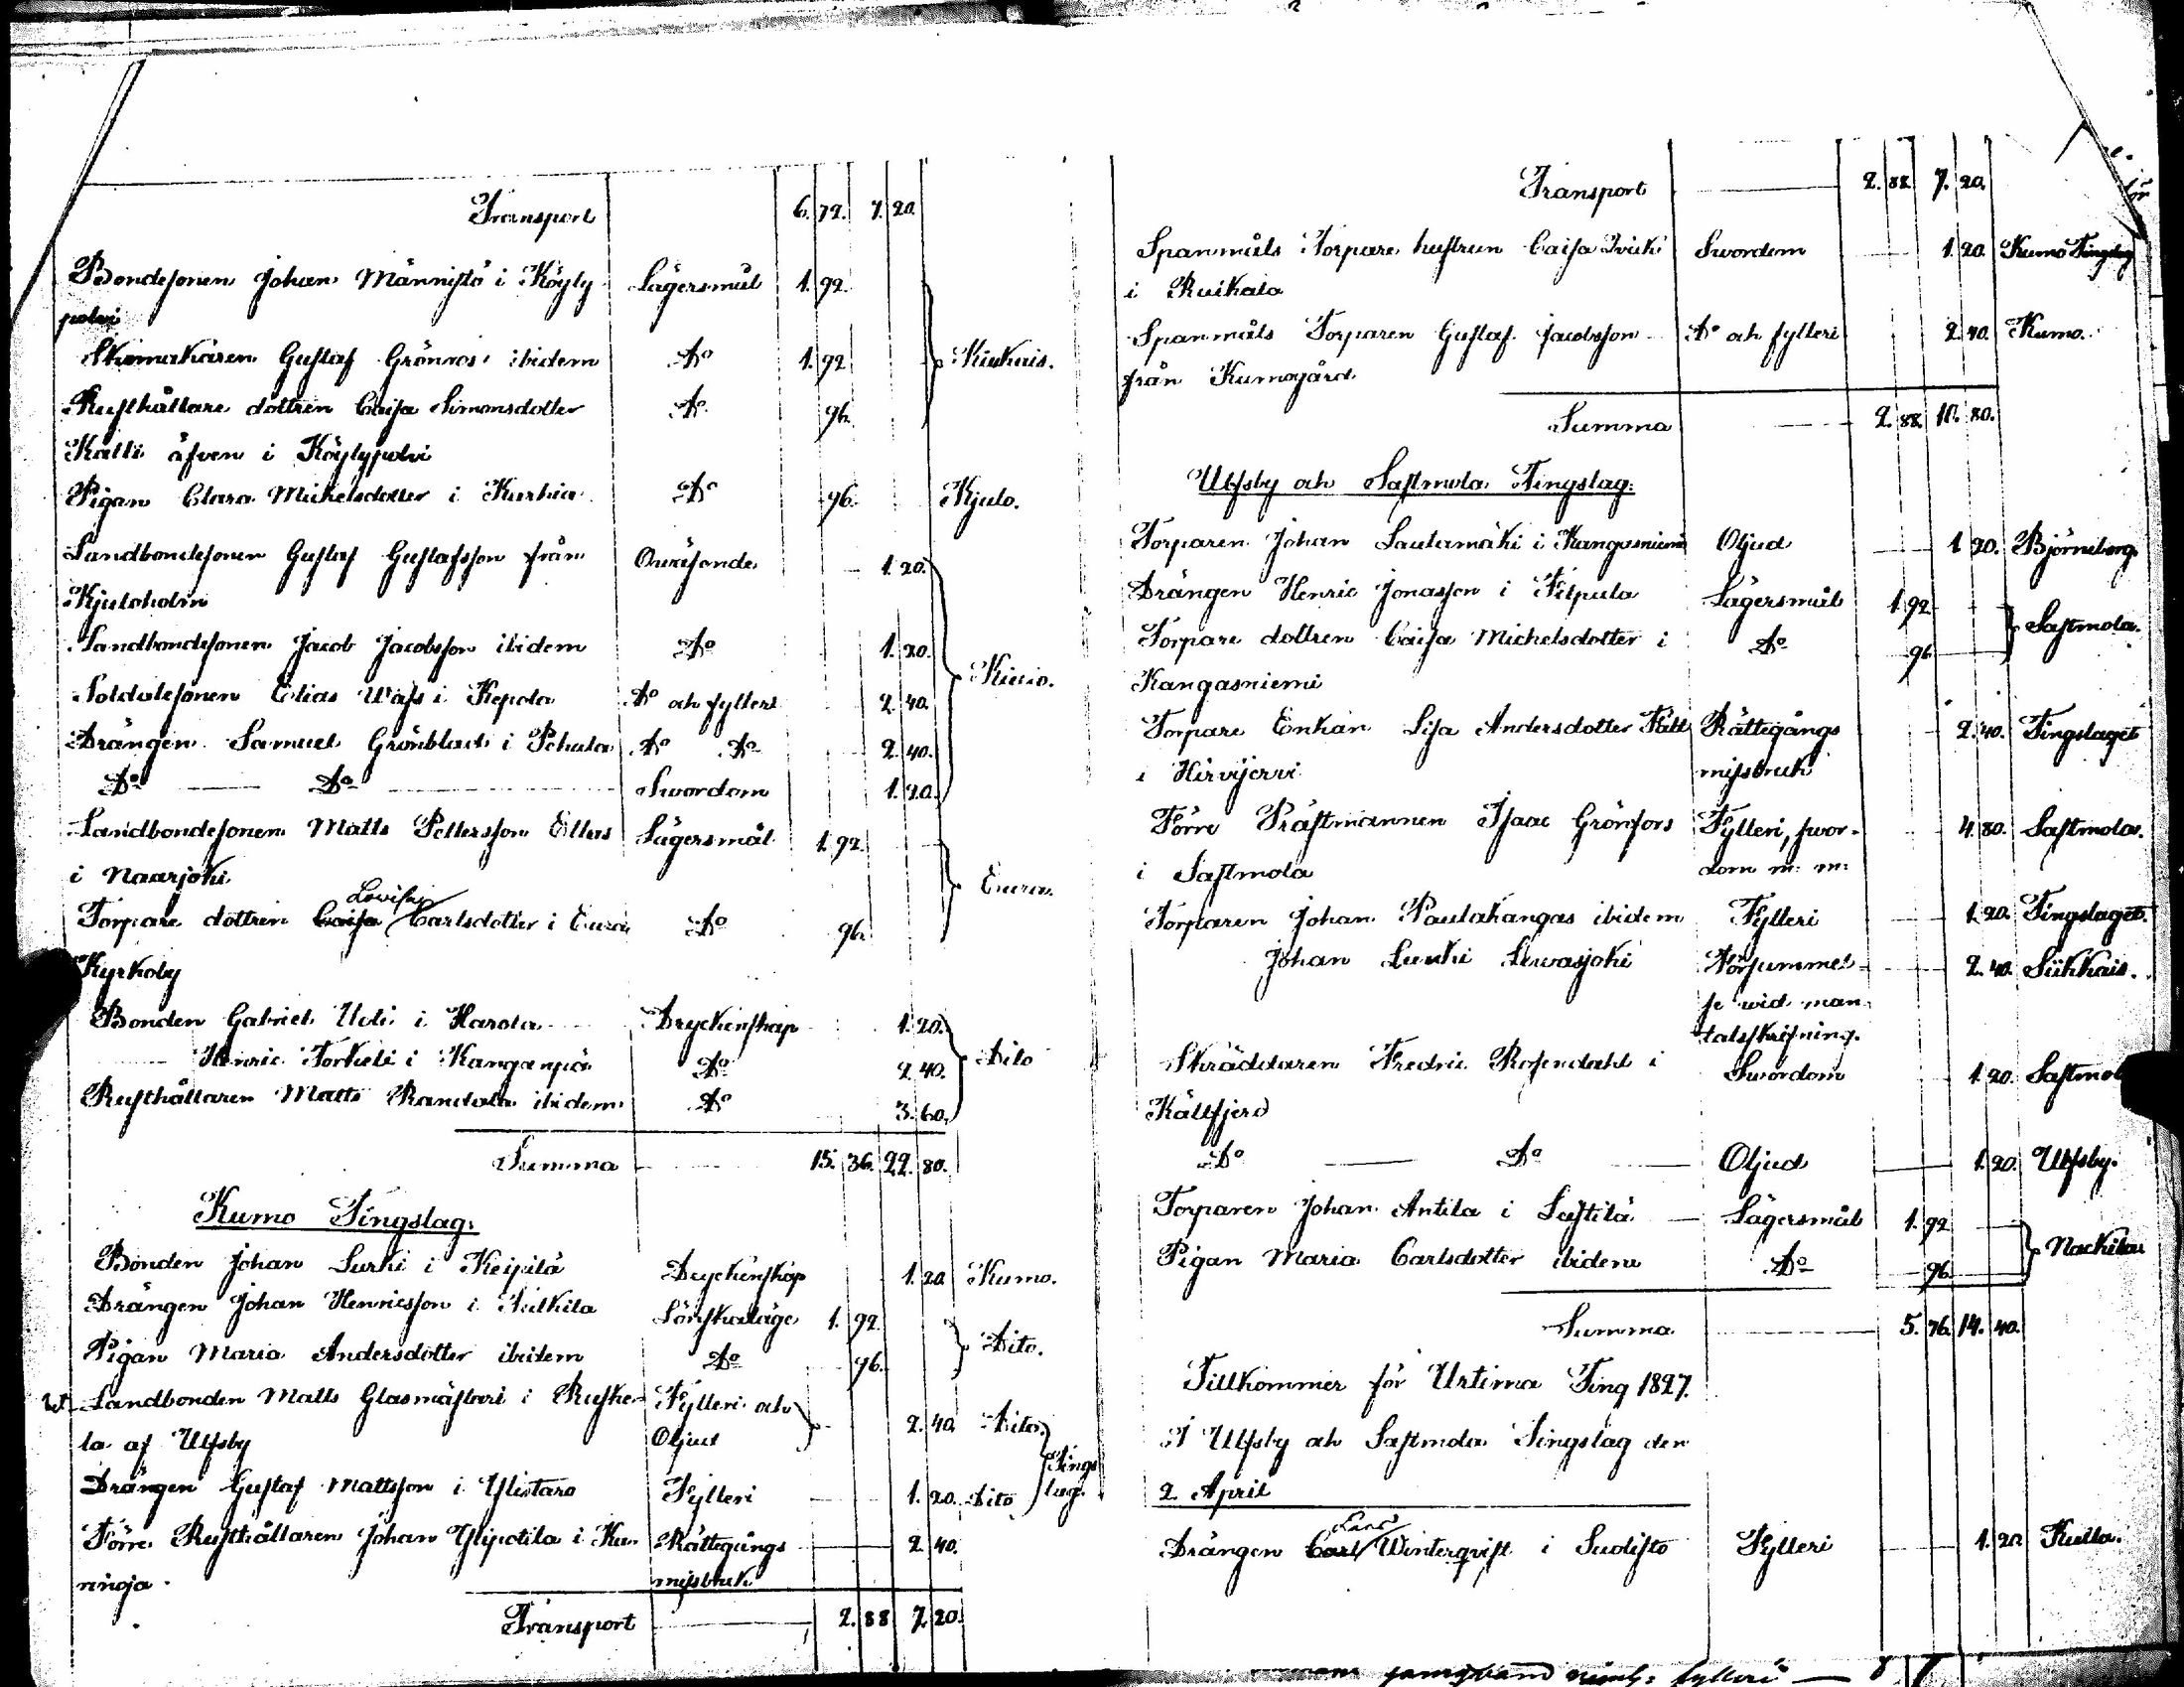 Transport 6. 72. 7. 20.
Bondesonen Johan Männistö i Köyly Lägersmål 1. 92.
polvi
Skomakaren Gustaf Grönroos ibidem Do 1. 92 Kiukais.
Rusthållare dottren Caisa Simonsdotter Do 96.
Kalli äfven i Köylypolvi
Pigan Clara Michelsdotter i Kurkia Do 96. Kjulo.
Landbondesonen Gustaf Gustafsson från Oväsende 1. 20.
Kjuloholm
Landbondesonen Jacob Jacobsson ibidem Do 1. 20.
Soldatesonen Elias Wass i Kepola Do och fylleri 2. 40.
Drängen Samuel Grönblad i Do Do 2. 40.
Do Do Swordom 1. 20.
Landbondesonen Matts Pettersson Ellas Lägersmål 1. 92. Eura.
i Naarjoki
Lovisa
Torpare dottren Caisa Carlsdotter i Eura Do 96.
Kyrkoby
Bonden Gabriel Uoti i Harola Dryckenskap 1. 20.
Henric Torkeli i Kanganpä Do 2. 40. Dito
Rusthållaren Matts Randala ibidem Do 3. 60.
Summa 15. 36. 22. 80.
Kumo Tingslag.
Bonden Johan Surki i Keipilä Dryckenskap 1. 20. Kumo.
Drängen Johan Henricsson i Lönskaläge 1. 92.
Pigan Maria Andersdotter ibidem Do 96. Dito.
Landbonden Matts Glasmästari i Ruske- Fylleri och 2. 40. Dito
la af Ulfsby Oljud
Tings
Drängen Gustaf Mattsson i Ylistaro Fylleri 1. 20. Dito lag.
Förre Rusthållaren Johan Ylipotila i Ku- Rättegångs 2. 40.
ninoja. missbruk
Transport 2. 88 7. 20.
Transport 2. 88. 7. 20.
Spanmåls Torpare hustrun Caisa Swordom 1. 20. Kumo Tingslag
i Ruikala
Spanmåls Torparen Gustaf Jacobsson Do och fylleri 2. 40. Kumo.
från Kumogård
Summa 2. 88. 10. 80.
Ulfsby och Sastmola Tingslag.
Torparen Johan Lautamäki i Kangasniemi Oljud 1. 20. Björneborg.
Drängen Henric Jonasson i Filpula Lägersmål 1. 92 Sastmola.
Torpare dottren Caisa Michelsdotter i Do 96
Kangasniemi
Torpare Enkan Lisa Andersdotter Fält Rättegångs 2. 40. Tingslaget
i Hirvijervi missbruk
Förre Prästmannen Isaac Grönfors Fylleri, swor- 4. 80. Sastmola.
i Sastmola dom m. m.
Torparen Johan Pautakangas ibidem Fylleri 1. 20. Tingslaget.
Johan Leuki Lewasjoki Försummel- 2. 40. Siikkais.
se wid man-
talsskrifning.
Skräddaren Fredric Rosendahl i Swordom 1. 20. Sastmol
Källfjerd
Do Do Oljud 1. 20. Ulfsby.
Torparen Johan Antila i Lästilä Lägersmål 1. 92 Nackila
Pigan Maria Carlsdotter ibidem Do 96.
Summa 5. 76. 14. 40.
Tillkommer för Urtima Ting 1827.
I Ulfsby och Sastmola Tingslag den
2 April
Lars
Drängen Carl Winterqvist i Suolisto Fylleri 1. 20 Kulla.